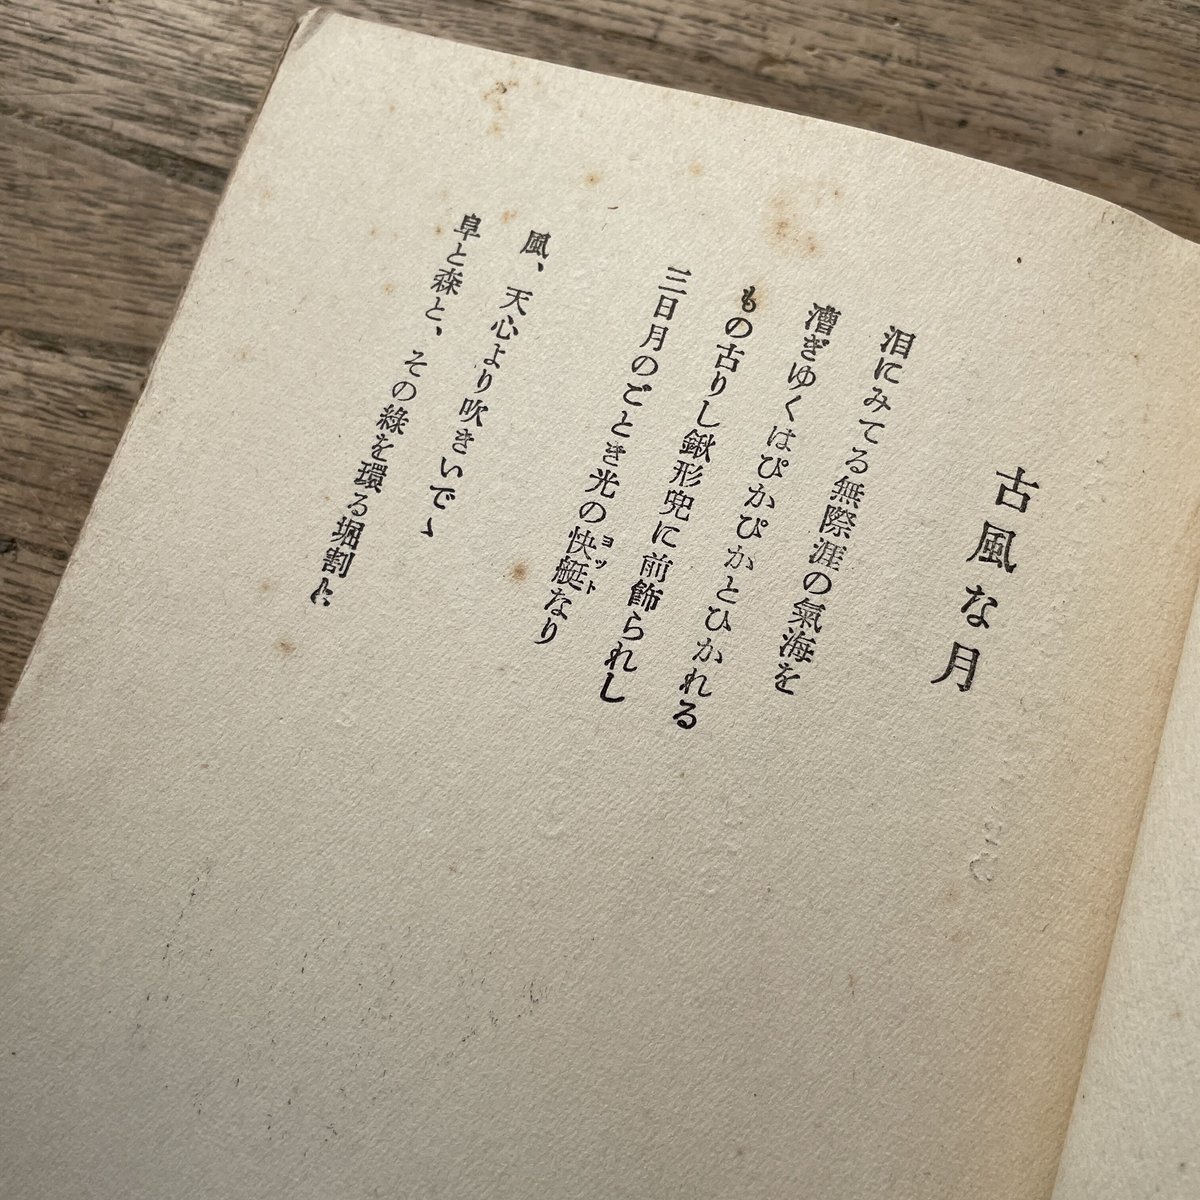 古風な月
泪にみてる無際涯の氣海を
漕ぎゆくはぴかぴかとひかれる
もの古りし鍬形兜に前飾られし
三日月のごとき光の快艇なり
ヨット
風、天心より吹きいでゝ
阜と森と、その綠を環る堀割と